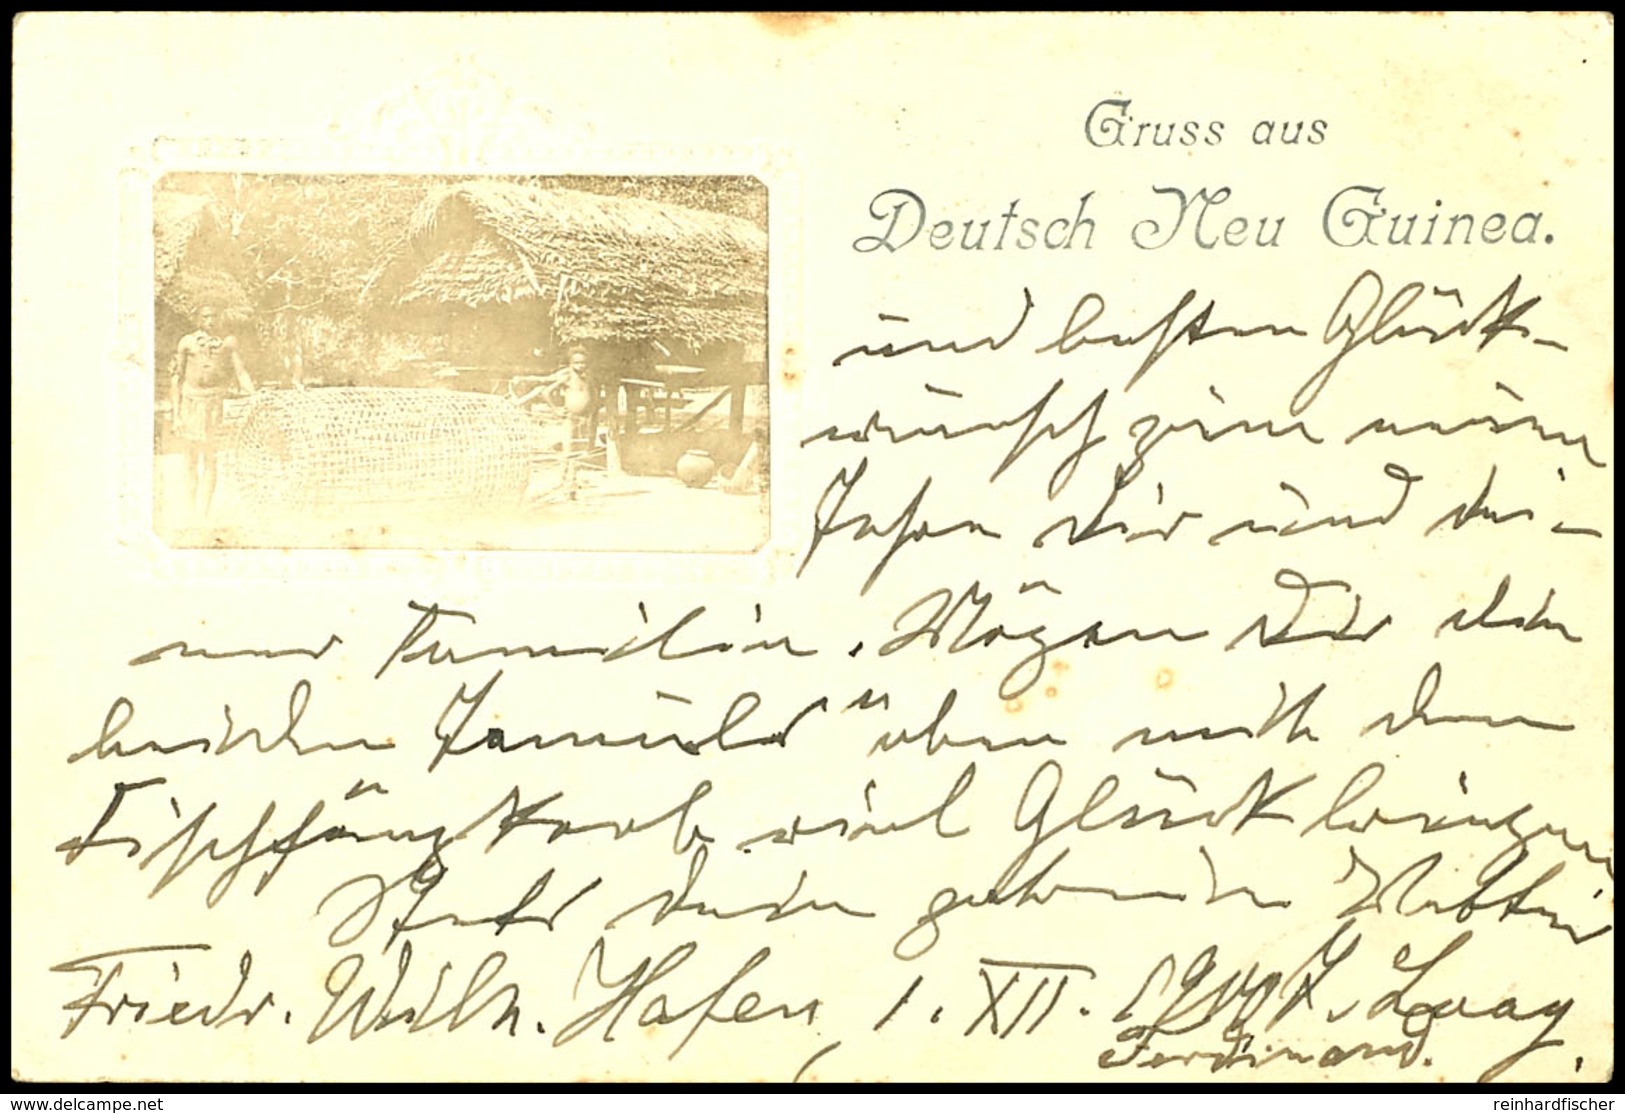 Gruss aus
Deutsch Neu Guinea.
und besten Glück-
wunsch zum neuen
Jahre Dir und dei-
ner Familie. Mögen Dir die
beiden oben mit dem
Fischfangkorb viel Glück bringen
Stets dein
Friedr. Wilh. Hafen, 1. XII.
Ferdinand.
delcampe.net
reinhardfischer